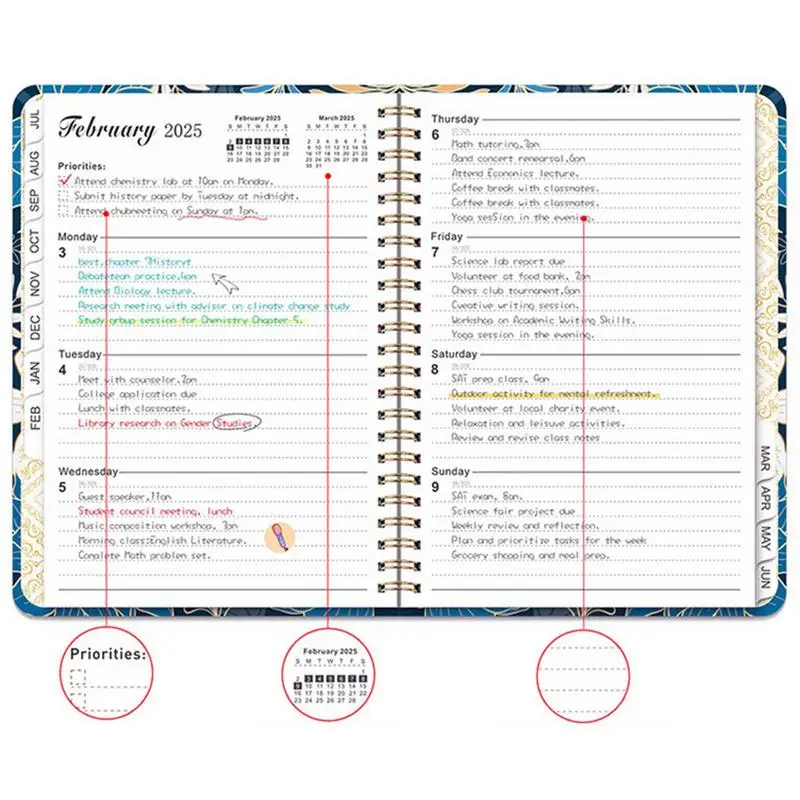 JUL
AUG
SEP
OCT
NOV
DEC
JAN
FEB
February 2025
February 2025
S M T W T F S
1
2 3 4 5 6 7 8
9 10 11 12 13 14 15
16 17 18 19 20 21 22
23 24 25 26 27 28
March 2025
S M T W T F S
1
2 3 4 5 6 7 8
9 10 11 12 13 14 15
16 17 18 19 20 21 22
23 24 25 26 27 28 29
30 31
Priorities:
Attend chemistry lab at 10am on Monday.
Submit history paper by Tuesday at midnight.
Attend clubmeeting on Sunday at 1pm.
Monday
3
best.chapter 7Historyt
Debateteam practice,4pm
Attend Biology lecture.
Research meeting with advisor on climate change study
Study group session for Chemistry Chapter 5.
Tuesday
4
Meet with counselor,2pm
College application due
Lunch with classmates.
Library research on Gender Studies.
Wednesday
5
Guest speaker,11am
Student council meeting, lunch
Music composition workshop, 3pm
Morning class:English Literature.
Complete Math problem set.
Thursday
6
Math tutoring,3pm
Band concert rehearsal,6pm
Attend Economics lecture.
Coffee break with classmates.
Coffee break with classmates.
Yoga sesSion in the evening.
Friday
7
Science lab report due
Volunteer at food bank, 2pm
Chess club tournament,6pm
Cveative writing session.
Workshop on Academic Wviting Skills.
Yoga session in the evening.
Saturday
8
SAT prep class, 9am
Outdoor activity for mental refreshment.
Volunteer at local charity event.
Relaxation and leisuve activities.
Review and revise class notes
Sunday
9
SAT exam, 8am.
Science fair project due
Weekly review and reflection.
Plan and prioritize tasks for the week
Grocery shopping and meal prep.
MAR
APR
MAY
JUN
Priorities:
February 2025
S M T W T F S
1
2 3 4 5 6 7 8
9 10 11 12 13 14 15
16 17 18 19 20 21 22
23 24 25 26 27 28